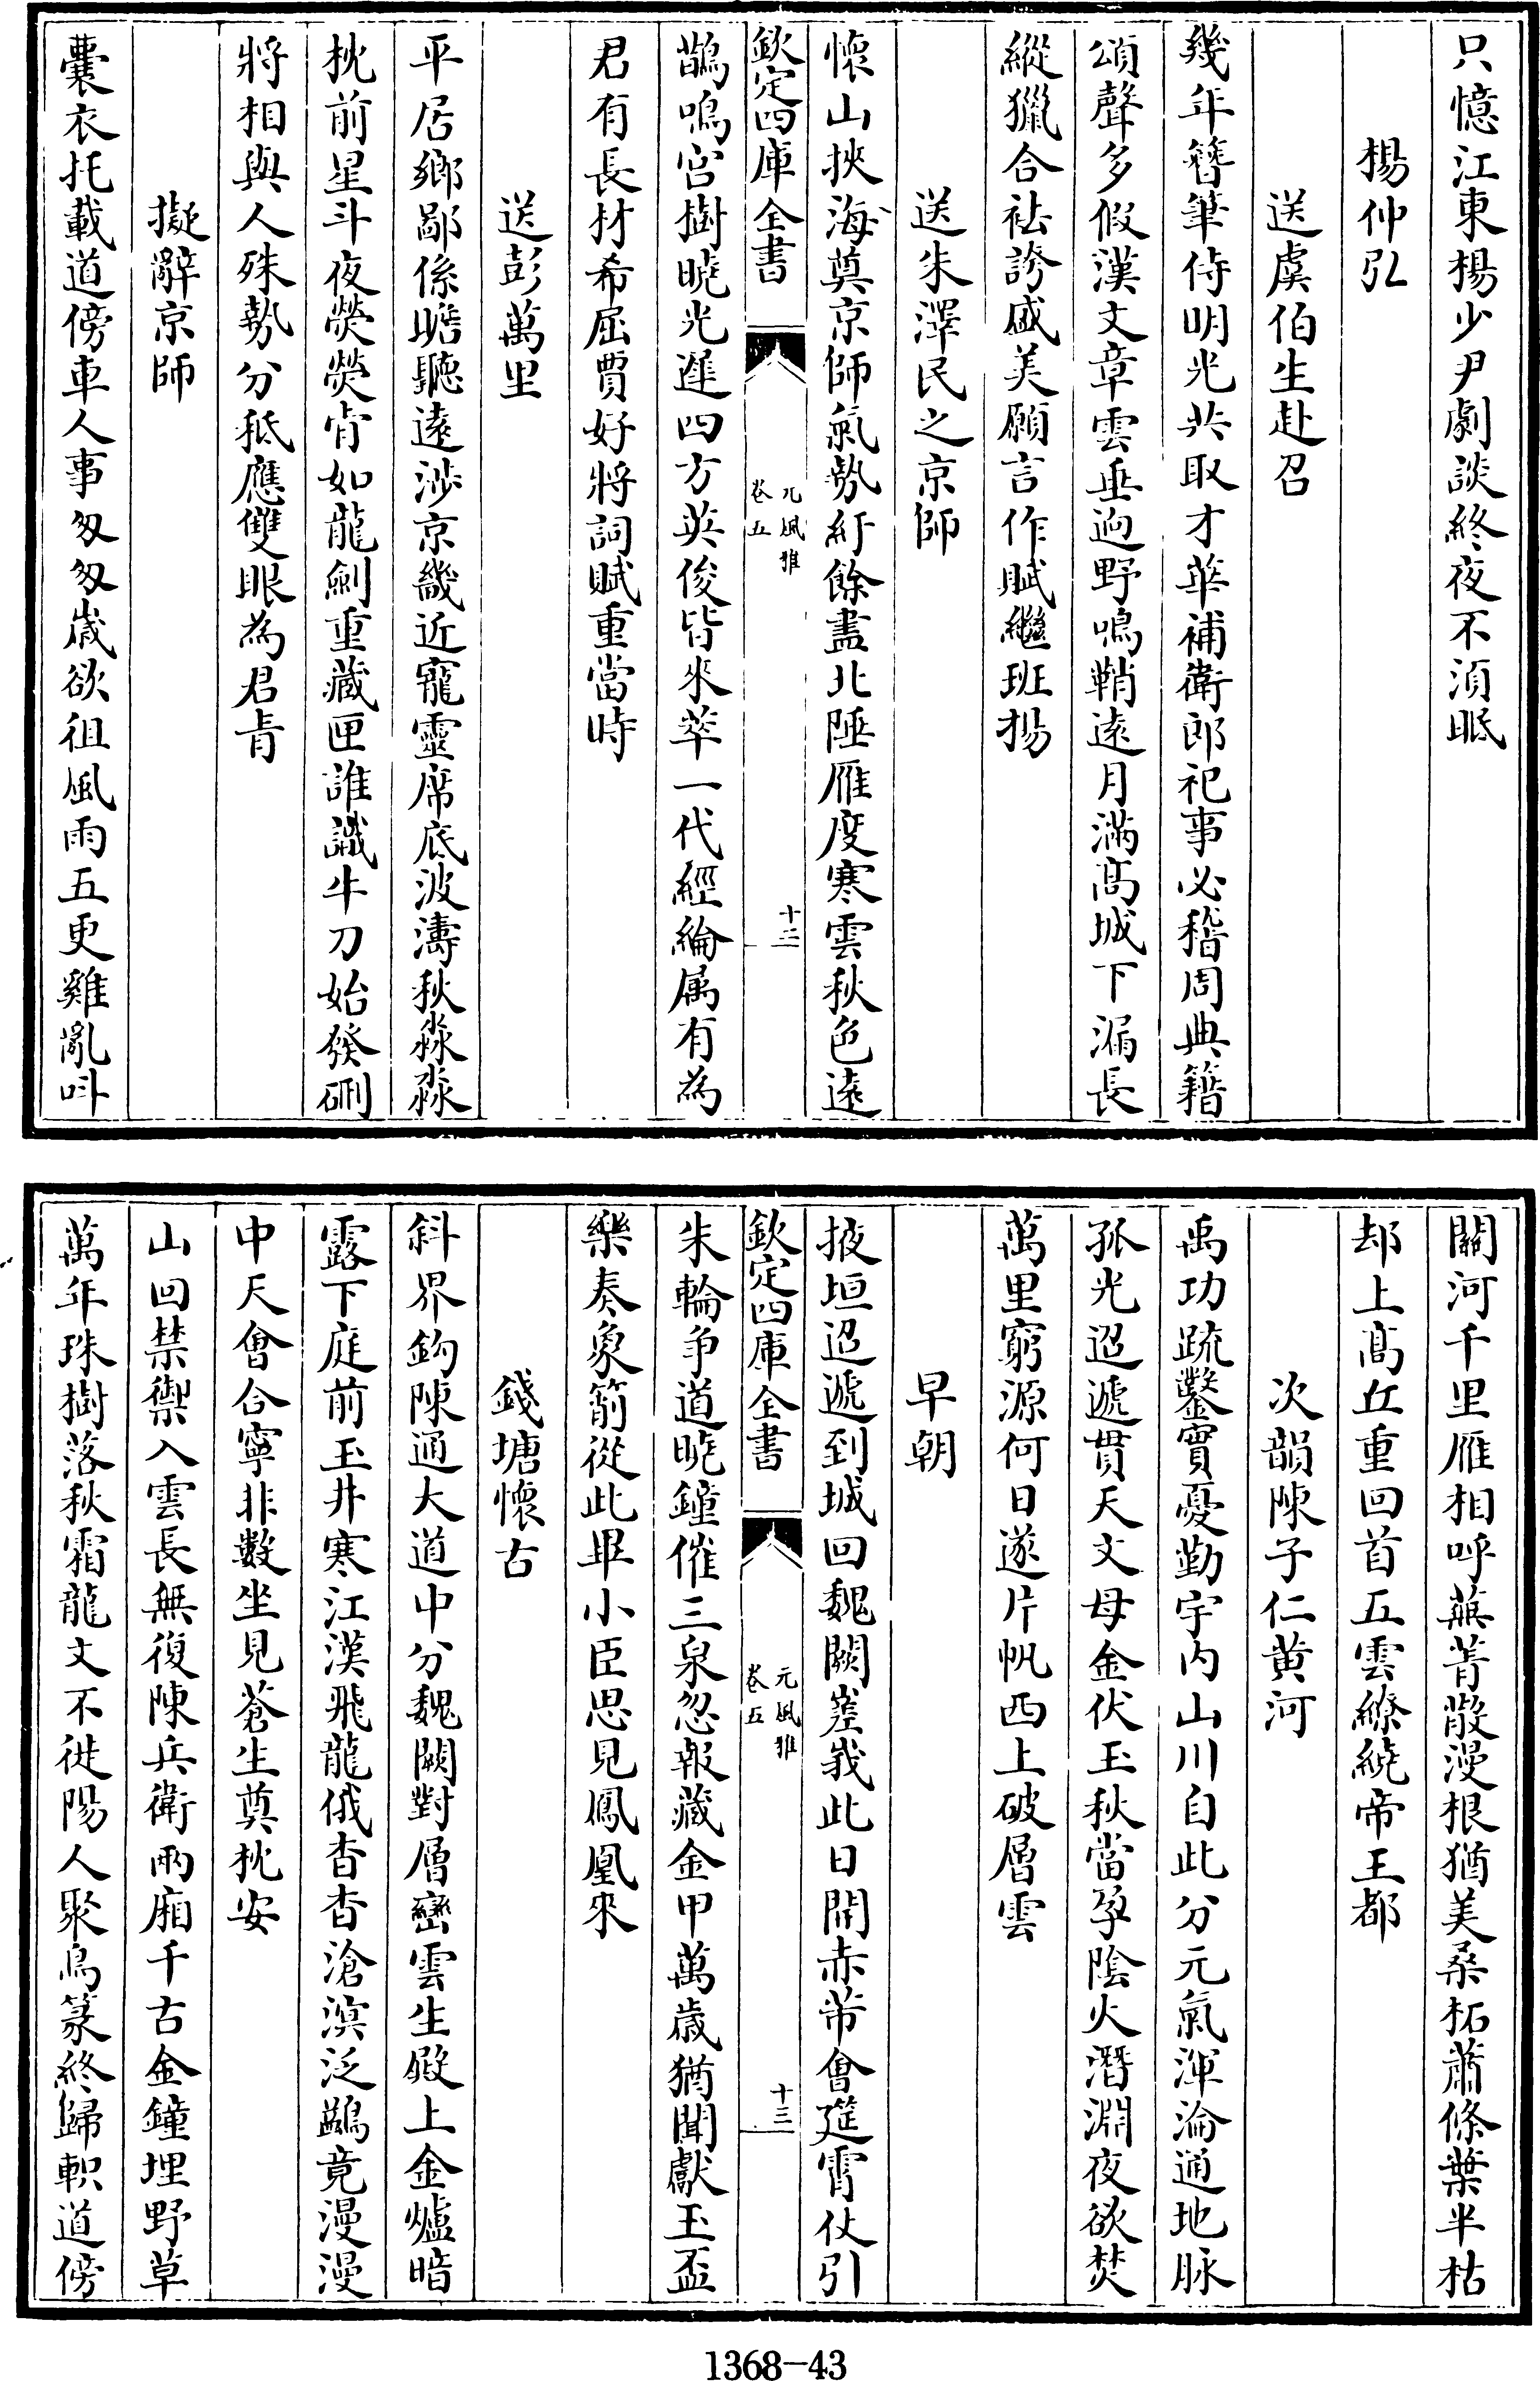 只憶江東楊少尹劇談終夜不湏眠
楊仲弘
送虞伯生赴召
幾年簪筆侍明光共取才華補衛郎祀事必稽周典籍
頌聲多假漢文章雲垂逈野鳴鞘遠月滿髙城下漏長
縱獵合袪誇盛美願言作賦繼班揚
送朱澤民之京師
懷山挾海奠京師氣勢紆餘盡北陲雁度寒雲秋色逺
欽定四庫全書
元風雅
卷五
十二
鵲鳴宫樹曉光遲四方英俊皆來萃一代經綸属有為
君有長材希屈賈好將詞賦重當時
送彭萬里
平居鄉鄙係瞻聽逺涉京畿近寵靈席底波濤秋淼淼
枕前星斗夜熒熒肯如龍劍重藏匣誰識牛刀始發硎
將相與人殊勢分秪應雙眼為君青
擬辭京師
囊衣托載道傍車人事匆匆嵗欲徂風雨五更雞亂呌
關河千里雁相呼蕪菁散漫根猶美桑柘蕭條葉半枯
却上髙丘重回首五雲繚繞帝王都
次韻陳子仁黄河
禹功疏鑿實憂勤宇内山川自此分元氣渾淪通地脉
孤光迢遞貫天文母金伏玉秋當孕陰火潛淵夜欲焚
萬里窮源何日遂片帆西上破層雲
早朝
掖垣迢遞到城回魏闕嵳峩此日開赤芾會筵霄仗引
欽定四庫全書
元風雅
卷五
十三
朱輪争道曉鐘催三泉忽報藏金甲萬歳猶聞獻玉盃
樂奏象箾從此畢小臣思見鳳凰來
錢塘懷古
斜界鈎陳通大道中分魏闕對層巒雲生殿上金爐暗
露下庭前玉井寒江漢飛龍俄杳杳滄溟泛鷁竟漫漫
中天會合寧非數坐見蒼生奠枕安
山回禁禦入雲長無復陳兵衛兩廂千古金鐘埋野草
萬年珠樹落秋霜龍文不徙陽人聚鳥篆終歸軹道傍
1368-43